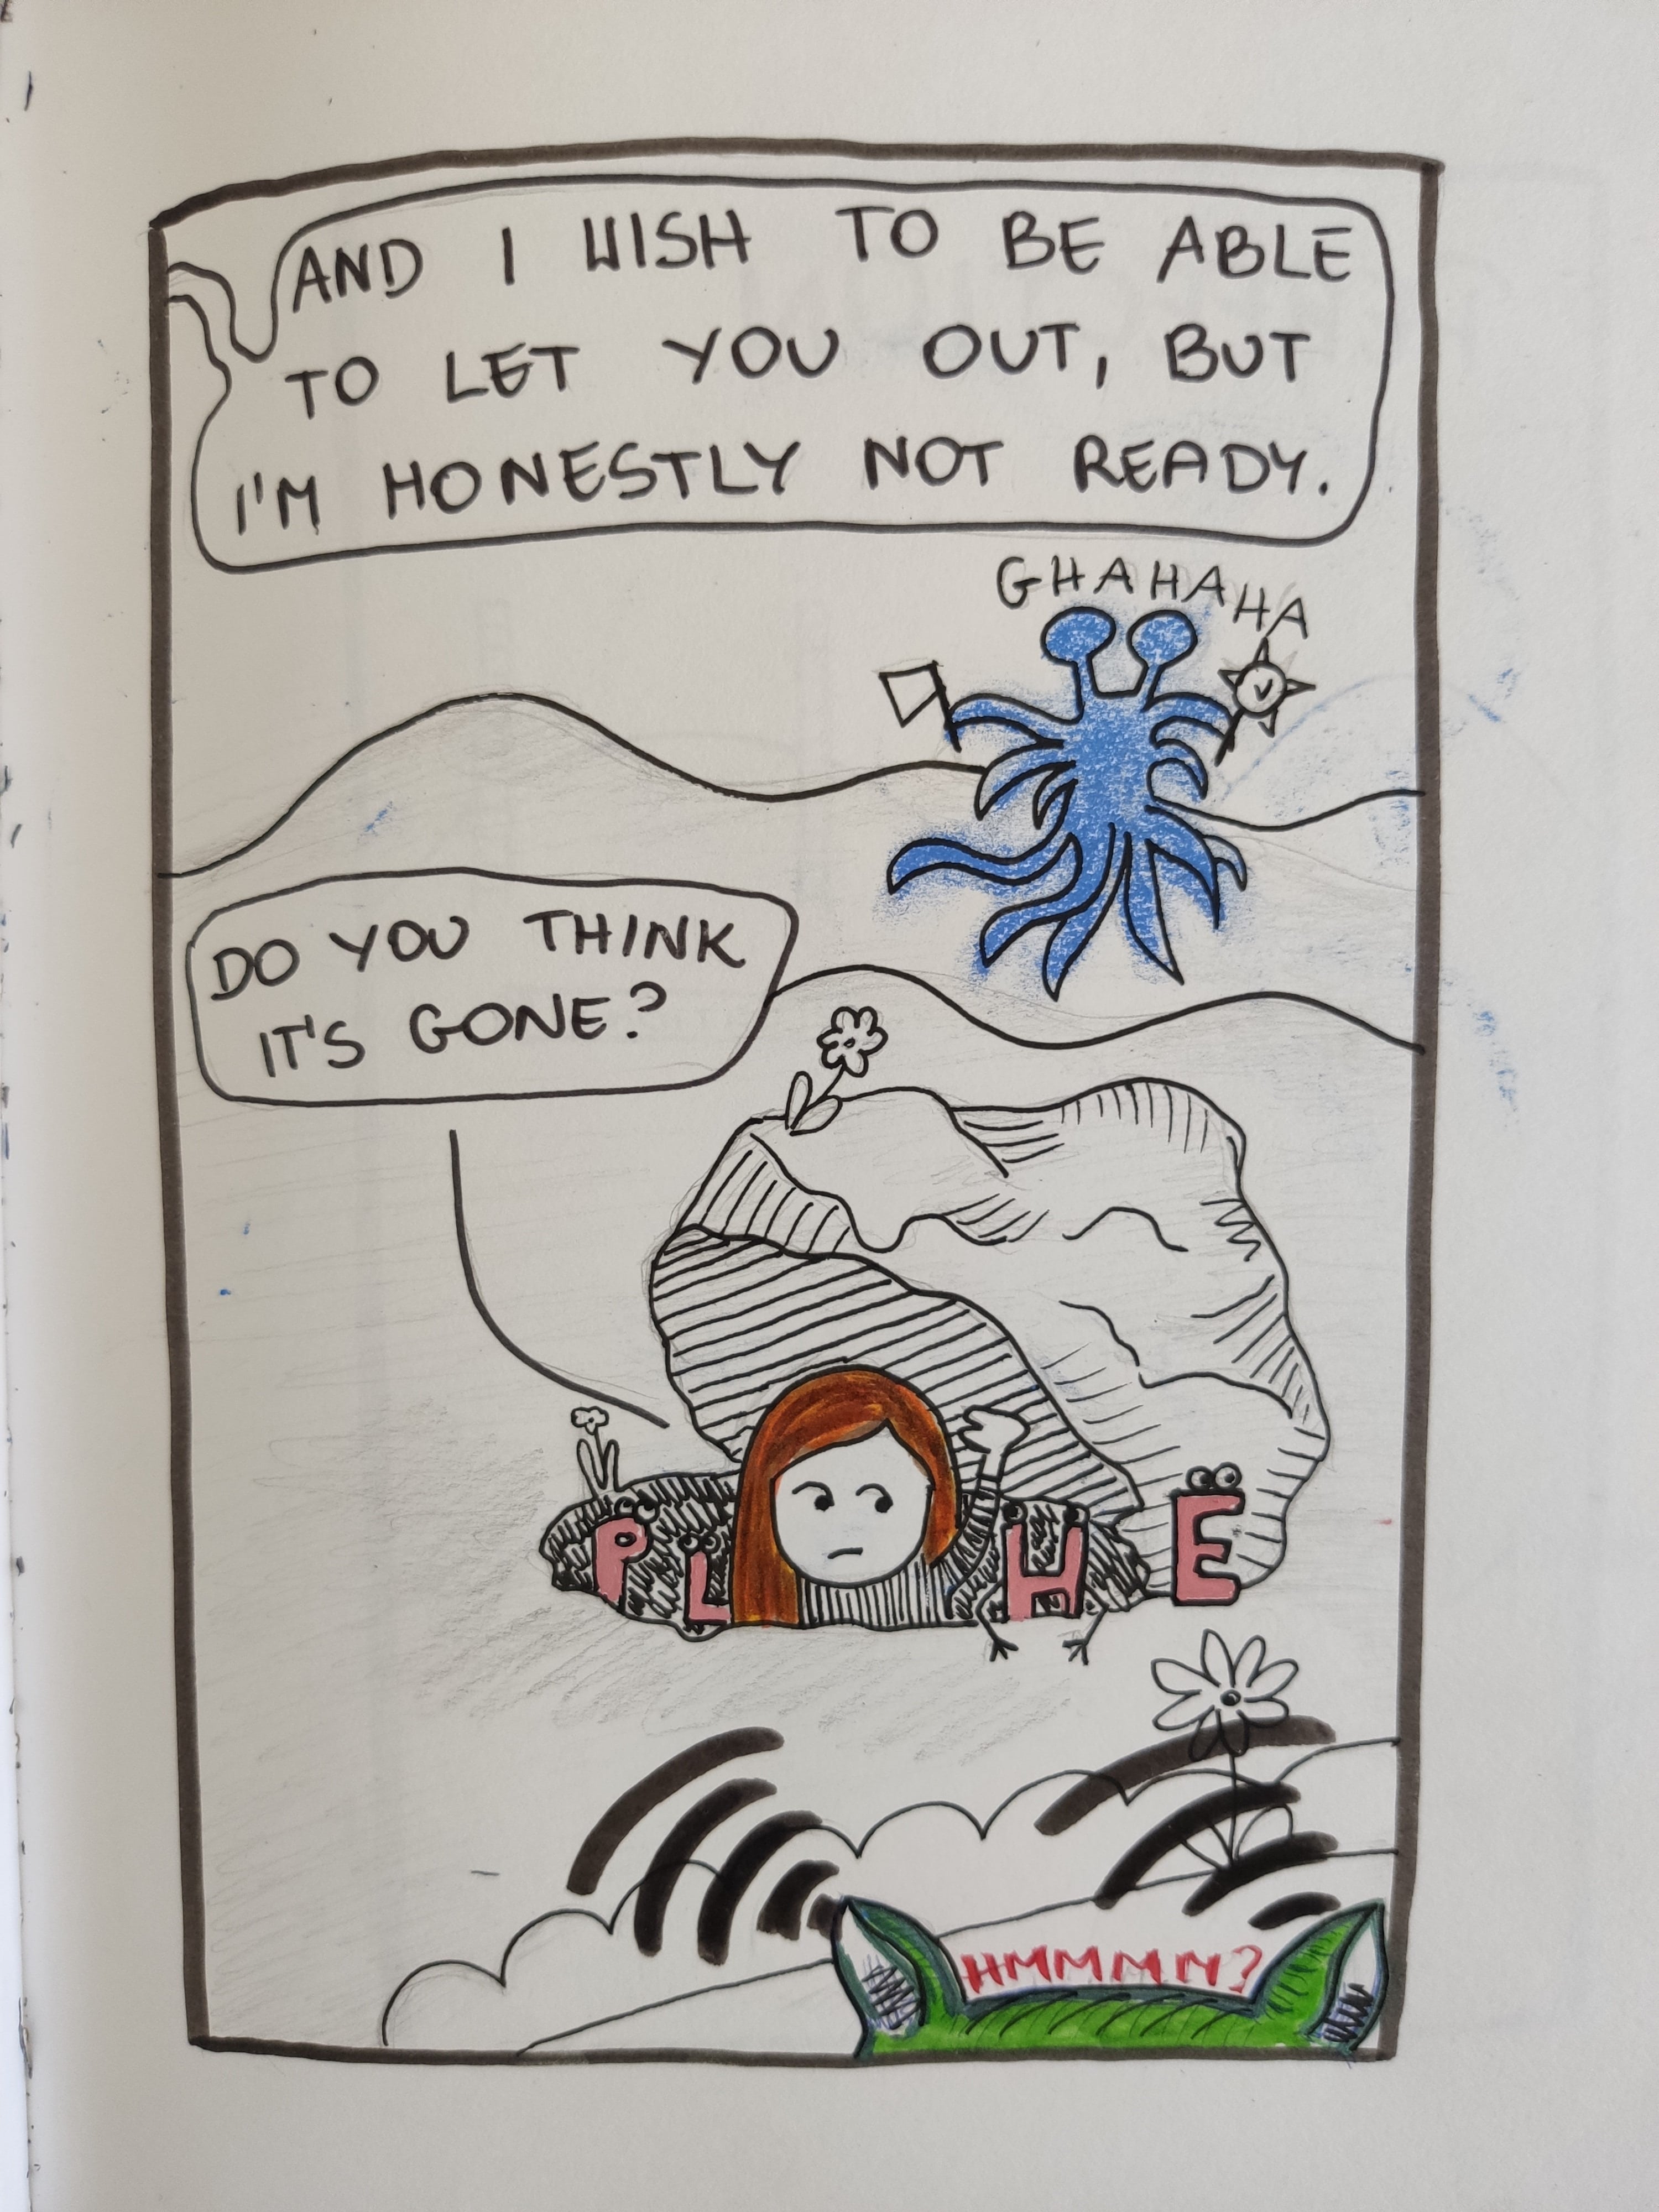 AND I WISH TO BE ABLE
TO LET YOU OUT, BUT
I'M HONESTLY NOT READY.
GHAHAHA
DO YOU THINK
IT'S GONE?
P L H E
HMMMMM?